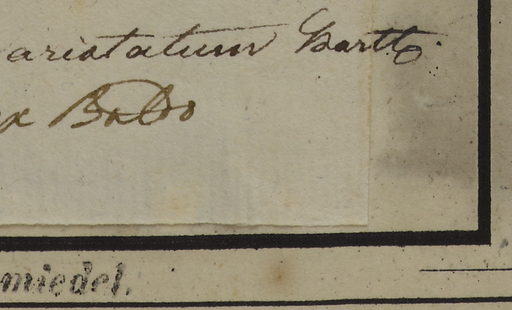 aristatum Bartl.
ex Baldo
miedel.